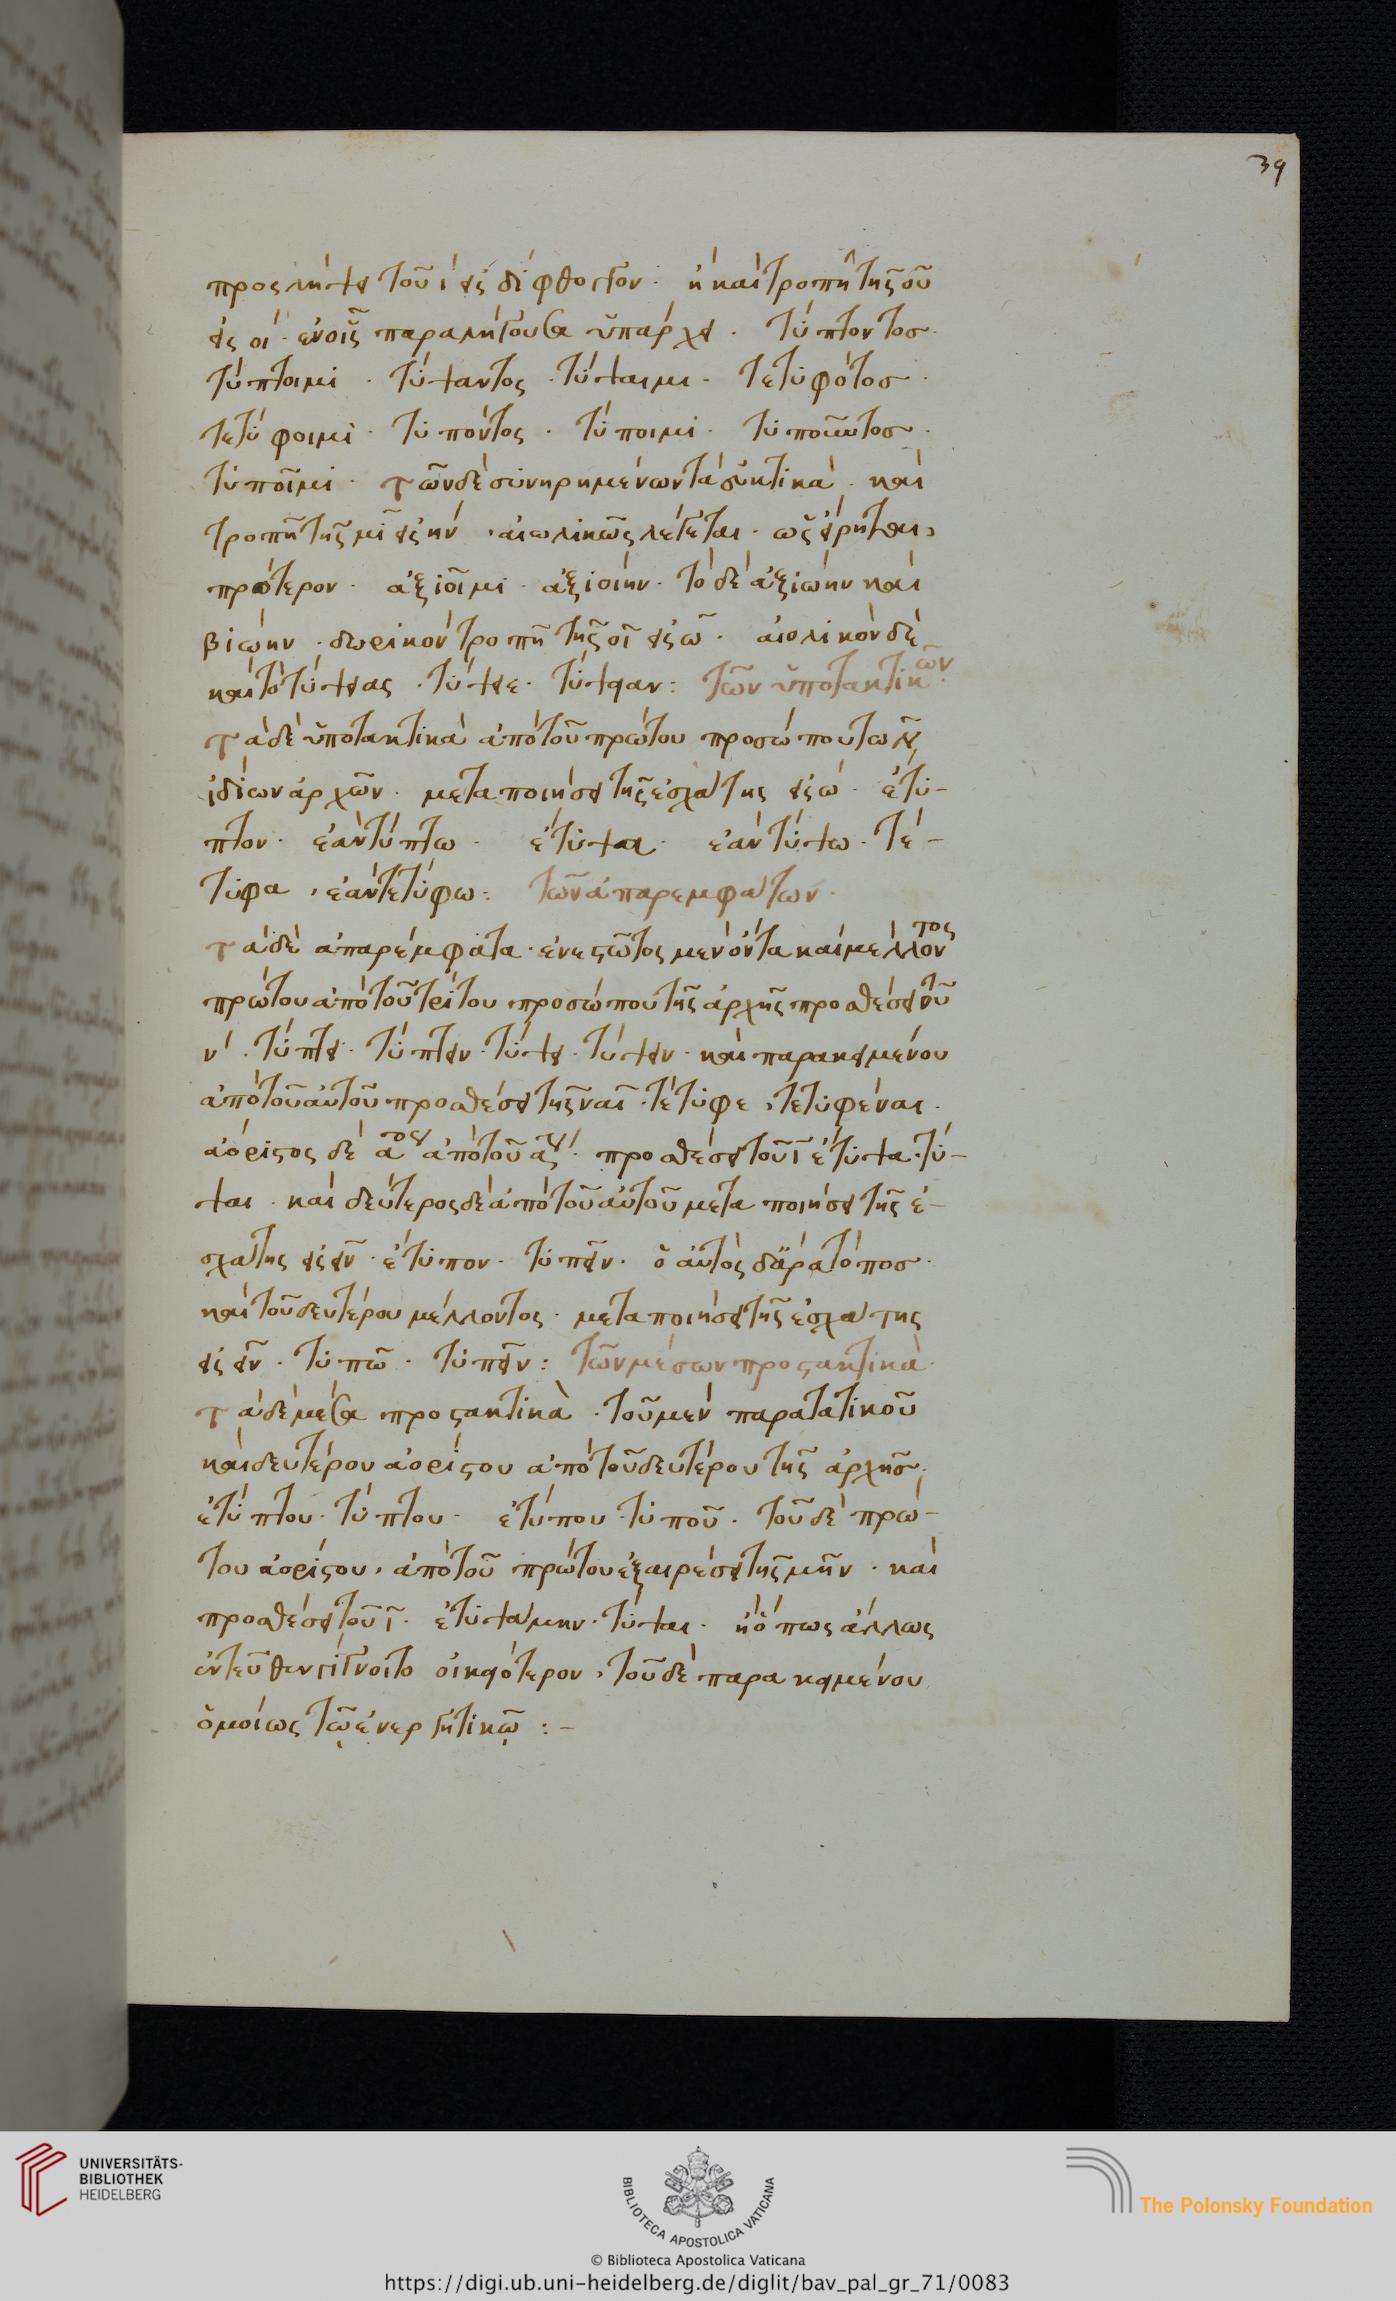 39
προσλήψει τοῦ ι εἰς δίφθογγον. ἢ καὶ τροπῇ τῆς οῦ
εἰς οι. ἐν οἷς παραλήγουσα ὑπάρχει. τύπτοντος.
τύπτοιμι. τύψαντος. τύψαιμι. τετυφότος.
τετύφοιμι. τυπόντος. τύποιμι. τυποῦντος.
τυποῖμι. τῶν δὲ συνηρημένων τὰ εὐκτικὰ. καὶ
τροπῇ τῆς μι εἰς ην. αἰωλικῶς λέγεται. ὡς εἴρηται,
πρότερον. ἀξιοῖμι. ἀξιοίην. τὸ δὲ ἀξιώην καὶ
βιώην. δωρικὸν τροπῇ τῆς οι εἰς ω. αἰολικὸν δὲ
καὶ τὸ τύψειας. τύψειε. τύψειαν: τῶν ὑποτακτικῶν.
τὰ δὲ ὑποτακτικὰ ἀπὸ τοῦ πρώτου προσώπου τῶν
ἰδίων ἀρχῶν. μεταποιήσει τῆς ἐσχάτης εἰς ω. ἔτυ-
πτον. ἐὰν τύπτω. ἔτυψα. ἐὰν τύψω. τέ-
τυφα, ἐὰν τετύφω: τῶν ἀπαρεμφάτων.
τὰ δὲ ἀπαρέμφατα. ἐνεστῶτος μὲν ὄντα καὶ μέλλοντος
πρώτου ἀπὸ τοῦ τρίτου προσώπου τῆς ἀρχῆς προσθέσει τοῦ
ν. τύπτει. τύπτειν. τύψει. τύψειν. καὶ παρακειμένου
ἀπὸ τοῦ αὐτοῦ προσθέσει τῆς ναι. τέτυφε, τετυφέναι.
ἀόριστος δὲ α ἀπὸ τοῦ α. προσθέσει τοῦ ι ἔτυψα. τύ-
ψαι. καὶ δεύτερος δὲ ἀπὸ τοῦ αὐτοῦ μεταποιήσει τῆς ἐ-
σχάτης εἰς εῖν. ἔτυπον. τυπεῖν. ὁ αὐτὸς δ' ἄρα τόπος.
καὶ τοῦ δευτέρου μέλλοντος. μεταποιήσει τῆς ἐσχάτης
εἰς εῖν. τυπῶ. τυπεῖν: τῶν μέσων προστακτικὰ.
τὰ δὲ μέσα προστακτικὰ. τοῦ μὲν παρατατικοῦ
καὶ δευτέρου ἀορίστου ἀπὸ τοῦ δευτέρου τῆς ἀρχῆς.
ἐτύπτου. τύπτου. ἐτύπου. τυποῦ. τοῦ δὲ πρώ-
του ἀορίστου, ἀπὸ τοῦ πρώτου ἐξαιρέσει τῆς μην. καὶ
προσθέσει τοῦ ι. ἐτυψάμην. τύψαι. ἢ ὅπως ἄλλως
ἐντεῦθεν γίγνοιτο οἰκειότερον, τοῦ δὲ παρακειμένου
ὁμοίως τῷ ἐνεργητικῷ :-
UNIVERSITÄTS-
BIBLIOTHEK
HEIDELBERG
BIBLIOTECA APOSTOLICA VATICANA
The Polonsky Foundation
© Biblioteca Apostolica Vaticana
https://digi.ub.uni-heidelberg.de/diglit/bav_pal_gr_71/0083